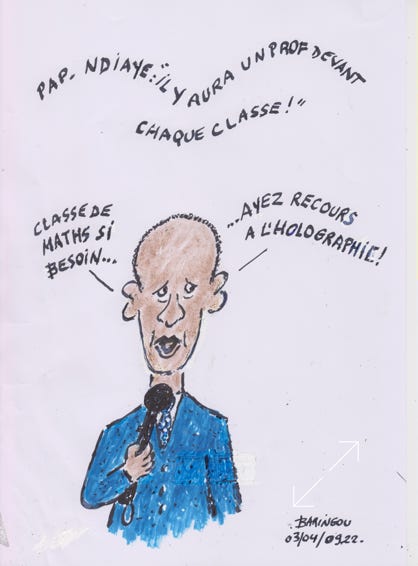 PAP. NDIAYE: "iL Y AURA UN PROF DEVANT
CHAQUE CLASSE!"
CLASSE DE
MATHS Si
BESOiN...
...AYEZ RECOURS
A L'HOLOGRAPHiE!
BAMINGOU
03/04/09.22.